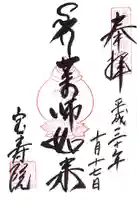 奉拝
平成三十年
十月十七日
薬師如来
宝寿院